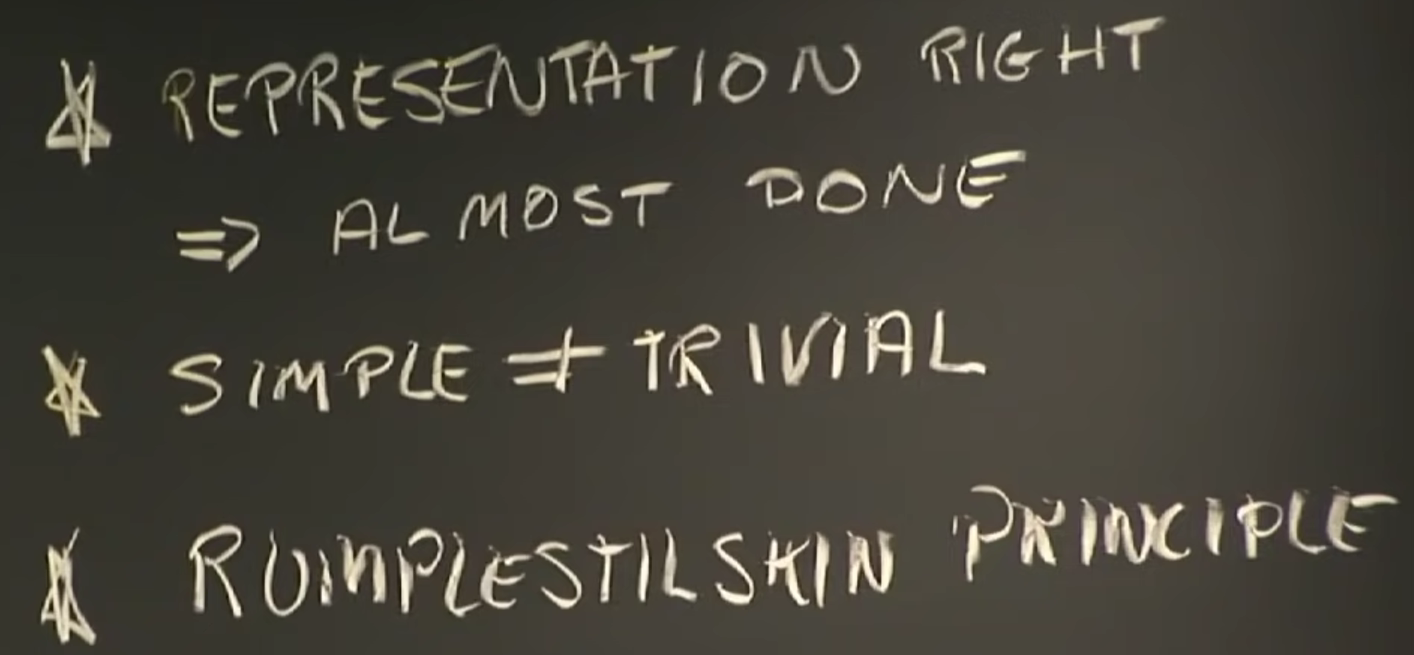 * REPRESENTATION RIGHT
⇒ ALMOST DONE
* SIMPLE ≠ TRIVIAL
* RUMPLESTILSKIN PRINCIPLE